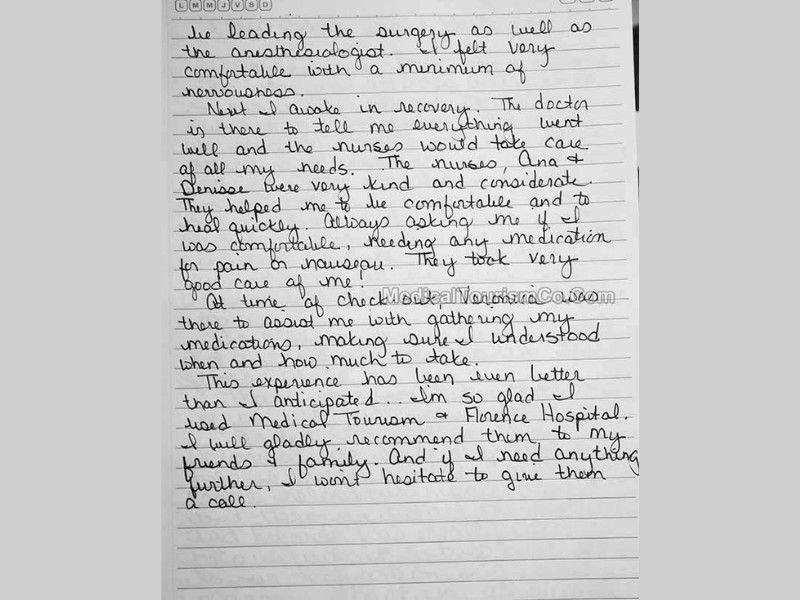 L M M J V S D
be leading the surgery as well as
the anesthesiologist. I felt very
comfortable with a minimum of
nervousness.
Next I awake in recovery. The doctor
is there to tell me everything went
well and the nurses would take care
of all my needs. The nurses, Ana &
Denisse were very kind and considerate.
They helped me to be comfortable and to
heal quickly. Always asking me if I
was comfortable, needing any medication
for pain or nauseau. They took very
good care of me!
MedicalTourismCo.Com
At time of check out, Veronica was
there to assist me with gathering my
medications, making sure I understood
when and how much to take.
This experience has been even better
than I anticipated.. I'm so glad I
used Medical Tourism & Florence Hospital.
I will gladly recommend them to my
friends & family. And if I need anything
further, I won't hesitate to give them
a call.